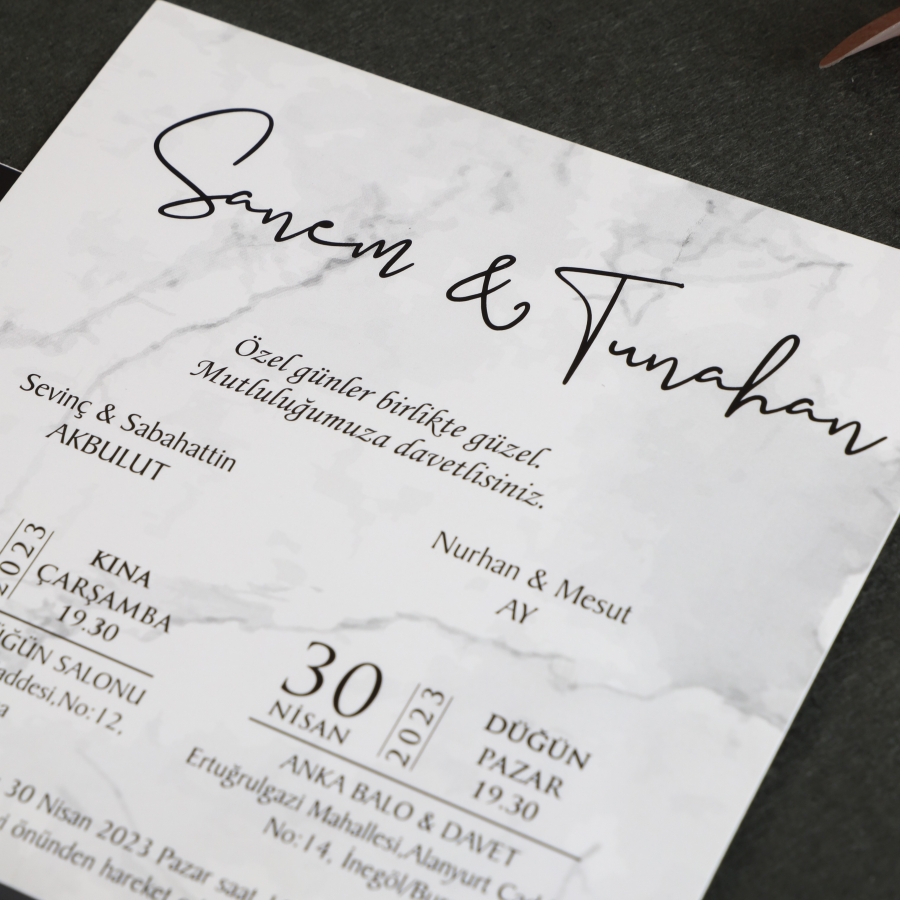 Sanem & Tunahan
Özel günler birlikte güzel.
Mutluluğumuza davetlisiniz.
Sevinç & Sabahattin
AKBULUT
Nurhan & Mesut
AY
2023
KINA
ÇARŞAMBA
19.30
SALONU
No:12,
30
NİSAN
2023
DÜĞÜN
PAZAR
19.30
ANKA BALO & DAVET
Ertuğrulgazi Mahallesi,Alanyurt
No:14, İnegöl/
30 Nisan 2023 Pazar saat
önünden hareket